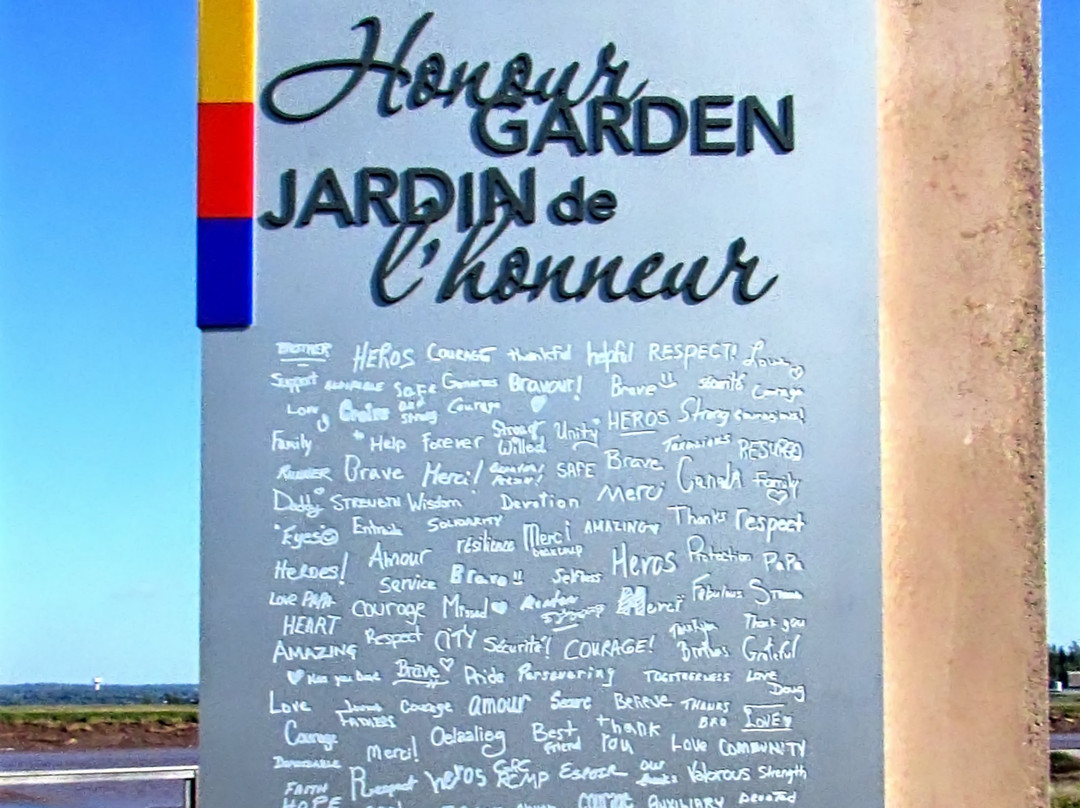 Honour
GARDEN
JARDIN de
l'honneur
BROTHER HEROS COURAGE thankful helpful RESPECT!
Support Safe Generous Bravour! Brave Courage
Love and Strong Courage HEROS Strong Courageous!
Family Help Forever Strong Willed Unity
RUNNER Brave Merci! SAFE Brave Canada Family
Daddy STRENGTH Wisdom Devotion Merci
"Eyes" Entraide SOLIDARITY résilience Merci beaucoup AMAZING Thanks respect
Heroes! Amour Service Bravo!! Selfless Heros Protection PaPa
LOVE PAPA courage Missed Merci Fabulous
HEART Respect CITY Sécurité! COURAGE! Thank you
AMAZING Brothers Grateful
Miss you Dave Brave Pride Persevering TOGETHERNESS Love Doug
Love FATHERS Courage amour Secure Believe THANKS BRO LOVE
Courage Merci! Best Friend thank You Love COMMUNITY
DEPENDABLE Respect heros GRC RCMP ESPOIR our Valorous Strength
FAITH
HOPE courage AUXILIARY Devoted